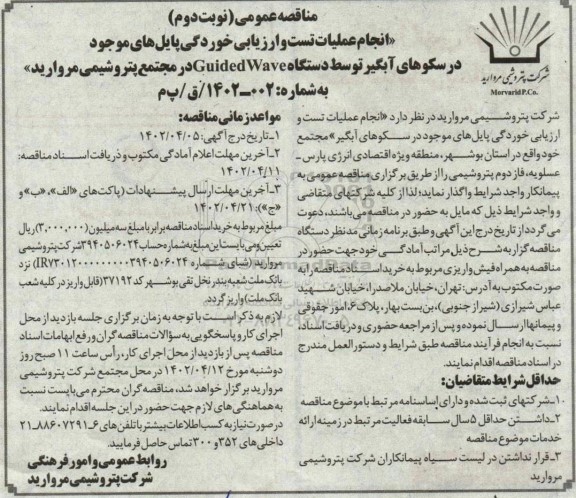 مناقصه عمومی (نوبت دوم)
«انجام عملیات تست و ارزیابی خوردگی پایل‌های موجود
در سکوهای آبگیر توسط دستگاه Guided Wave در مجتمع پتروشیمی مروارید»
به شماره: ۰۰۲-۱۴۰۲/ق/پ م
شرکت پتروشیمی مروارید
Morvarid P.Co.
شرکت پتروشیمی مروارید در نظر دارد «انجام عملیات تست و
ارزیابی خوردگی پایل‌های موجود در سکوهای آبگیر» مجتمع
خود واقع در استان بوشهر، منطقه ویژه اقتصادی انرژی پارس -
عسلویه، فاز دوم پتروشیمی را از طریق برگزاری مناقصه عمومی به
پیمانکار واجد شرایط واگذار نماید؛ لذا از کلیه شرکتهای متقاضی
و واجد شرایط ذیل که مایل به حضور در مناقصه می‌باشند، دعوت
می‌گردد از تاریخ درج این آگهی و طبق برنامه زمانی مدنظر دستگاه
مناقصه گزار به شرح ذیل مراتب آمادگی خود جهت حضور در
مناقصه به همراه فیش واریزی مربوط به خرید اسناد مناقصه را به
صورت مکتوب به آدرس: تهران، خیابان ملاصدرا، خیابان شهید
عباس شیرازی (شیراز جنوبی)، بن‌بست بهار، پلاک ۶، امور حقوقی
و پیمانها ارسال نموده و پس از مراجعه حضوری و دریافت اسناد،
نسبت به انجام فرآیند مناقصه طبق شرایط و دستورالعمل مندرج
در اسناد مناقصه اقدام نمایند.
حداقل شرایط متقاضیان:
۱- شرکتهای ثبت شده و دارای اساسنامه مرتبط با موضوع مناقصه
۲- داشتن حداقل ۵ سال سابقه فعالیت مرتبط در زمینه ارائه
خدمات موضوع مناقصه
۳- قرار نداشتن در لیست سیاه پیمانکاران شرکت پتروشیمی
مروارید
مواعد زمانی مناقصه:
۱- تاریخ درج آگهی: ۱۴۰۲/۰۴/۰۵
۲- آخرین مهلت اعلام آمادگی مکتوب و دریافت اسناد مناقصه:
۱۴۰۲/۰۴/۱۱
۳- آخرین مهلت ارسال پیشنهادات (پاکت‌های «الف»، «ب» و
«ج»): ۱۴۰۲/۰۴/۲۱
مبلغ مربوط به خرید اسناد مناقصه برابر با مبلغ سه میلیون (۳,۰۰۰,۰۰۰) ریال
تعیین و می‌بایست این مبلغ به شماره حساب ۳۹۴۰۵۰۶۰۲۴ شرکت پتروشیمی
مروارید (شبای شماره IR۷۳۰۱۲۰۰۰۰۰۰۰۰۰۳۹۴۰۵۰۶۰۲۴) نزد
بانک ملت شعبه بندر نخل تقی بوشهر کد ۳۷۱۹۲ (قابل واریز در کلیه شعب
بانک ملت) واریز گردد.
لازم به ذکر است با توجه به زمان برگزاری جلسه بازدید از محل
اجرای کار و پاسخگویی به سؤالات مناقصه گران و رفع ابهامات اسناد
مناقصه پس از بازدید از محل اجرای کار، رأس ساعت ۱۱ صبح روز
دوشنبه مورخ ۱۴۰۲/۰۴/۱۲ در محل مجتمع شرکت پتروشیمی
مروارید برگزار خواهد شد، مناقصه گران محترم می‌بایست نسبت
به هماهنگی‌های لازم جهت حضور در این جلسه اقدام نمایند.
در صورت نیاز به کسب اطلاعات بیشتر با تلفن‌های ۶-۸۸۶۰۷۲۹۱-۲۱
داخلی‌های ۳۵۲ و ۳۰۰ تماس حاصل فرمایید.
روابط عمومی و امور فرهنگی
شرکت پتروشیمی مروارید